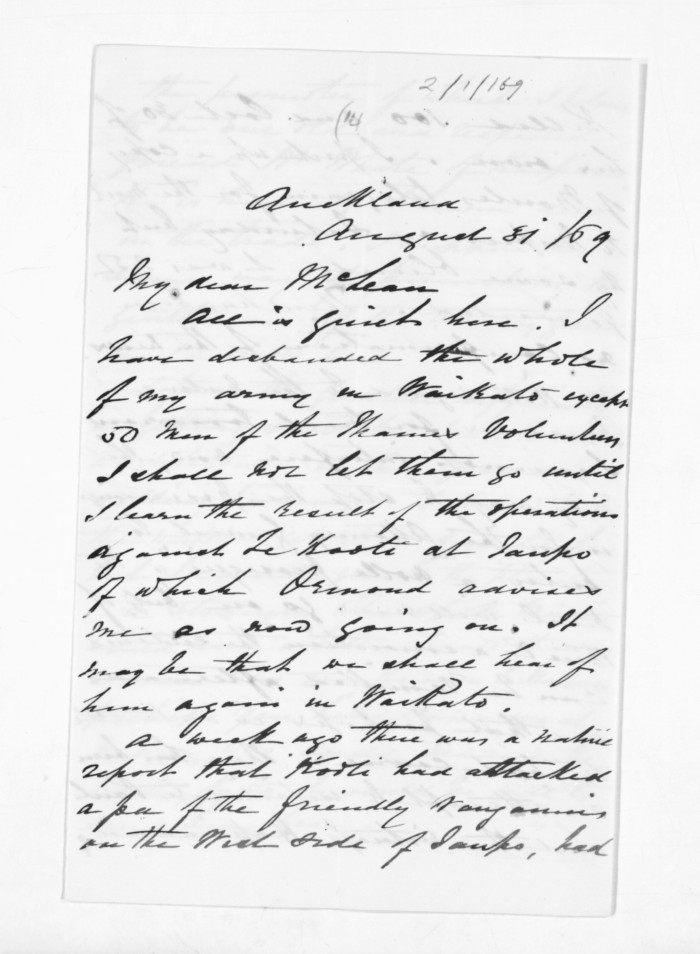 2/1/169
(14)
Auckland
August 31/69
My dear McLean
All is quiet here. I
have disbanded the whole
of my army in Waikato except
50 men of the Thames Volunteers
I shall not let them go until
I learn the result of the operations
against Te Kooti at Taupo
of which Ormond advises
me as now going on. It
may be that we shall hear of
him again in Waikato.
A week ago there was a native
report that Kooti had attacked
a pa of the friendly
on the West side of Taupo, had